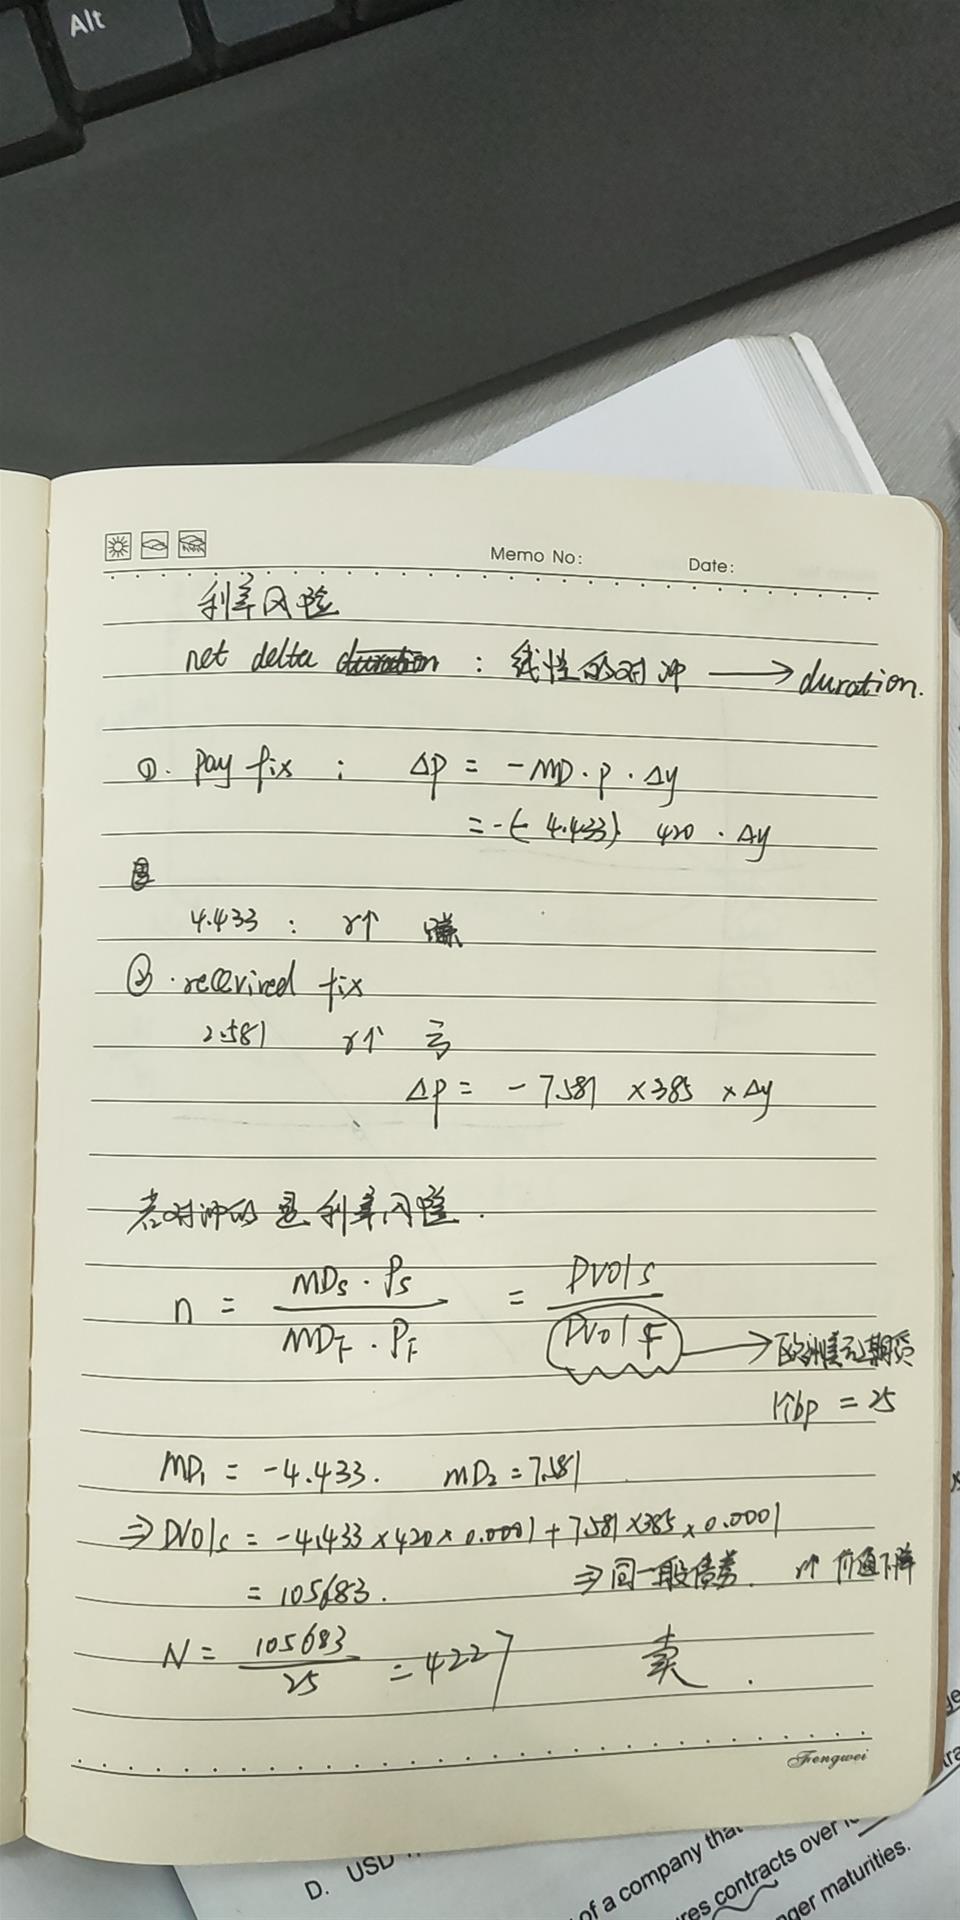 Alt
Memo No:
Date:
利率风险
net delta duration : 线性的对冲 → duration.
①. Pay fix : ΔP = -MD · P · Δy
= -(-4.433) 420 · Δy
4.433 : r↑ 赚
② . received fix
2.581 r↑ 亏
ΔP = - 7.581 × 385 × Δy
若对冲的是利率风险.
n = MDs · Ps / MDF · PF = DV01s / DV01F → 欧洲美元期货
1个bp = 25
MD₁ = -4.433. MD₂ = 7.581
⇒ DV01s = -4.433 × 420 × 0.0001 + 7.581 × 385 × 0.0001
= 105683. ⇒ 同一般债券. r↑ 价值下降
N = 105683 / 25 = 4227 卖.
Fengwei
D. USD
of a company that
res contracts over
ger maturities.